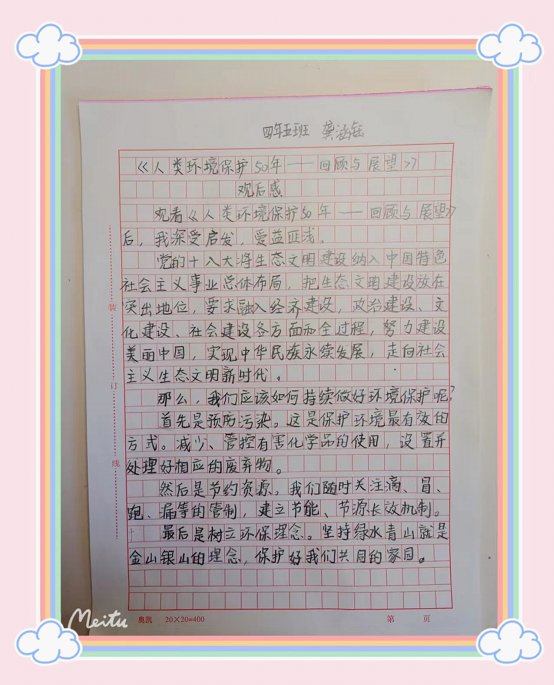 四年五班 龚涵钰
《人类环境保护50年——回顾与展望》
观后感
观看《人类环境保护50年——回顾与展望》
后，我深受启发，受益匪浅。
党的十八大将生态文明建设纳入中国特色
社会主义事业总体布局，把生态文明建设放在
突出地位，要求融入经济建设，政治建设、文
化建设、社会建设各方面和全过程，努力建设
美丽中国，实现中华民族永续发展，走向社会
主义生态文明新时代。
那么，我们应该如何持续做好环境保护呢？
首先是预防污染。这是保护环境最有效的
方式。减少、管控有害化学品的使用，设置并
处理好相应的废弃物。
然后是节约资源。我们随时关注滴、冒、
跑、漏等的管制，建立节能、节源长效机制。
最后是树立环保理念。坚持绿水青山就是
金山银山的理念，保护好我们共同的家园。
装
订
线
奥凯 20×20=400
第 页
Meitu